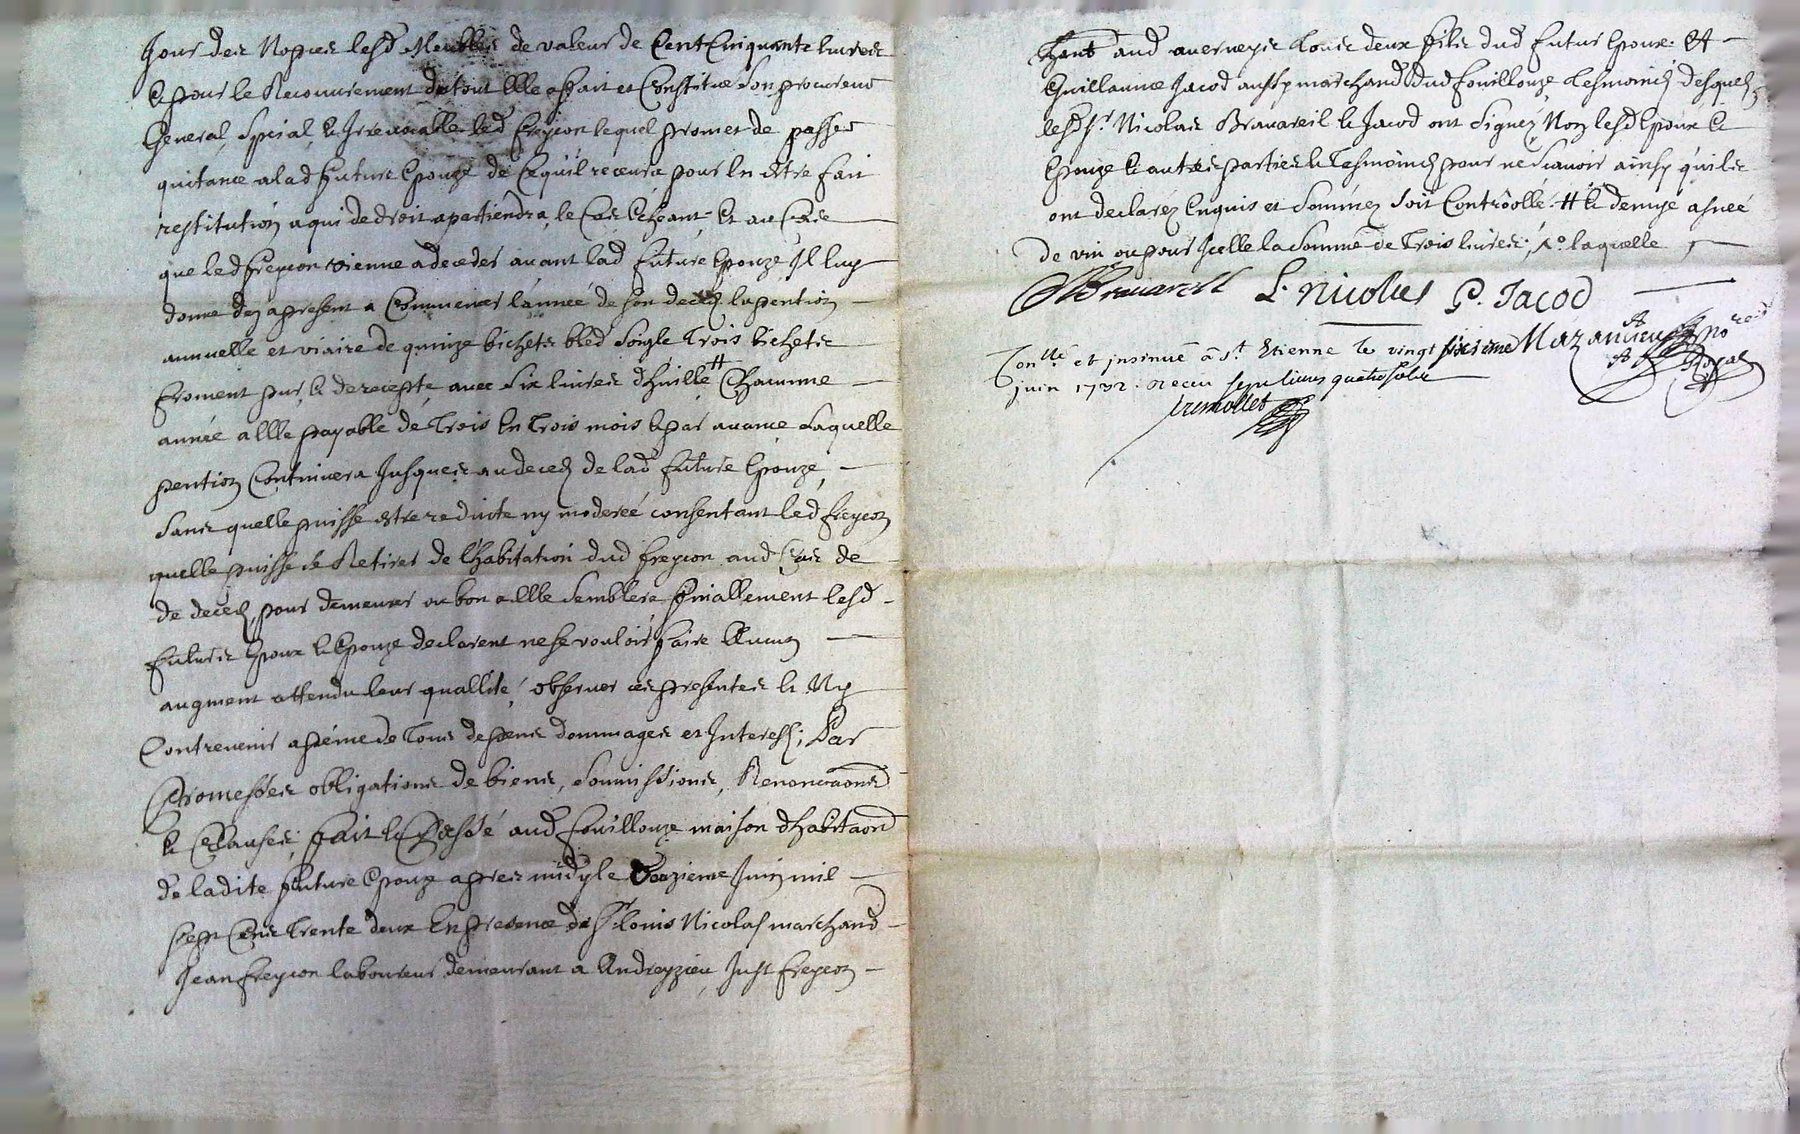 Jour des Nopces lesd. Meubles de valeur de Cent Cinquante livres
Et pour le Recouvrement du tout Elle a fait et Constitué Son procureur
General, Special, & Irrevocable led freycon lequel promet de passer
quitance a lad future Epouze de Ce quil recevra pour En Estre fait
restitution a qui de droit apartiendra, le Cas Echeant, Et au Cas
que led freycon vienne a deceder avant lad future Epouze Il luy
donne des apresent a Commencer lannée de son deces la pention
annuelle et viaire de quinze bichets bled Soigle Trois bichets
froment pur, & de recepte, avec Six livres d'huille # Chacunne
année a Elle payable de Trois En Trois mois & par avance Laquelle
pention Continuera Jusques au deces de lad future Epouze,
Sans quelle puisse estre reduite ny moderée consentant led freycon
quelle puisse se Retirer de l'habitation dud freycon aud Cas de
de deces, pour demeurer ou bon a Elle Semblera finallement lesd
futurs Epoux & Epouze declarent ne se vouloir faire Aucun
augment attendu leur quallité, observer ces presentes & Ny
Contrevenir a peine de Tous depens dommages et Interests; Par
Promesses obligations de biens, Soumissions, Renonciaons
& Clauses; fait & Passé aud fouillouze maison d'habitaon
de ladite future Epouze apres midy le Juin mil
sept Cens Trente deux En presence de Sr. Louis Nicolas marchand
Jean freycon laboureur demeurant a Andreyzieu, Just freycon
aud Tous deux fils dud futur Epoux. Et
Guillaume Jacod aussy marchand dud fouillouze Tesmoins desquels
lesd Srs. Nicolas & Jacod ont Signéz Non lesd Epoux &
Epouze & autres parties & Tesmoins pour ne Scavoir ainsy quils
ont declaréz Enquis et Sommez Soit Contrôollé. # & demye asnée
de vin ou pour Icelle la Somme de Trois livres; /. laquelle
L. Nicolas G. Jacod
Conllé et insinué à St. Etienne le vingt sixieme Mazancieu no.re
juin 1732. Receu sept livres quatre sols Royal